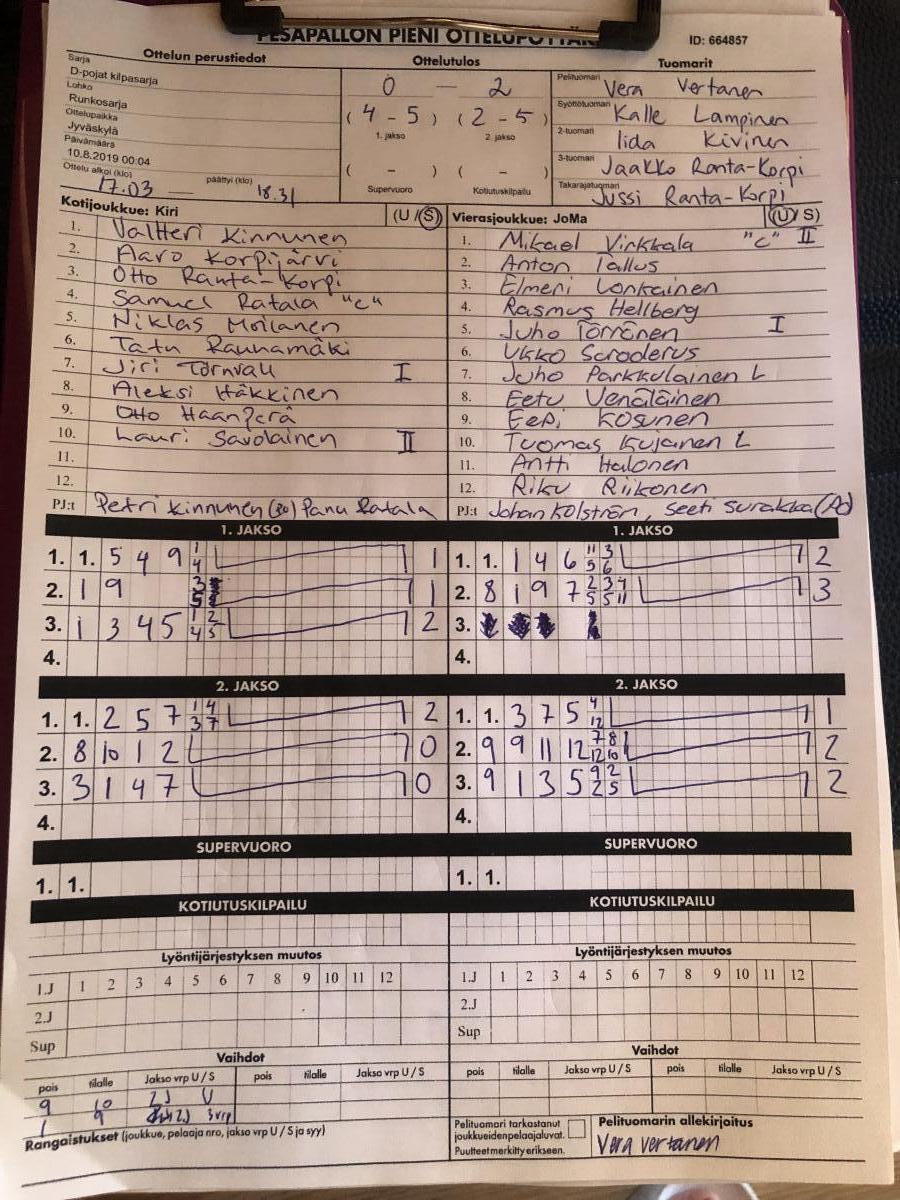 PESÄPALLON PIENI OTTELUPÖYTÄK
ID: 664857
Ottelun perustiedot
Sarja
D-pojat kilpasarja
Lohko
Runkosarja
Ottelupaikka
Jyväskylä
Päivämäärä
10.8.2019 00:04
Ottelu alkoi (klo) 17.03 päättyi (klo) 18.31
Ottelutulos
0 - 2
(4 - 5) (2 - 5)
1. jakso 2. jakso
( - ) ( - )
Supervuoro Kotiutuskilpailu
Tuomarit
Pelituomari Vera Vertanen
Syöttötuomari Kalle Lampinen
2-tuomari Iida Kivinen
3-tuomari Jaakko Ranta-Korpi
Takarajatuomari Jussi Ranta-Korpi
Kotijoukkue: Kiri (U / S)
1. Valtteri Kinnunen
2. Aaro Korpijärvi
3. Otto Ranta-Korpi
4. Samuel Ratala "C"
5. Niklas Moilanen
6. Tatu Raunamäki
7. Jiri Törnvall I
8. Aleksi Häkkinen
9. Otto
10. Lauri Savolainen II
11.
12.
PJ:t Petri Kinnunen Panu Ratala
Vierasjoukkue: JoMa (U / S)
1. Mikael Virkkala "C" II
2. Anton Tallus
3. Elmeri Lonkainen
4. Rasmus Hellberg
5. Juho Törrönen I
6. Ukko Scroderus
7. Juho Parkkulainen L
8. Eetu Venäläinen
9. Eepi Kosunen
10. Tuomas Kujanen L
11. Antti Halonen
12. Riku Riikonen
PJ:t Johan Kolström, Seeti Surakka
1. JAKSO
1. 1. 5 4 9 1 4 1
2. 1 9 3 1
3. 1 3 4 5 1 2 4 5 2
4.
1. JAKSO
1. 1. 1 4 6 11 3 5 6 2
2. 8 1 9 7 2 3 7 5 5 11 3
3.
4.
2. JAKSO
1. 1. 2 5 7 1 4 3 7 2
2. 8 10 1 2 0
3. 3 1 4 7 0
4.
2. JAKSO
1. 1. 3 7 5 4 12 1
2. 9 9 11 12 7 8 12 10 2
3. 9 1 3 5 9 2 2 5 2
4.
SUPERVUORO
1. 1.
SUPERVUORO
1. 1.
KOTIUTUSKILPAILU
KOTIUTUSKILPAILU
Lyöntijärjestyksen muutos
1.J 1 2 3 4 5 6 7 8 9 10 11 12
2.J
Sup
Lyöntijärjestyksen muutos
1.J 1 2 3 4 5 6 7 8 9 10 11 12
2.J
Sup
Vaihdot
pois tilalle Jakso vrp U / S pois tilalle Jakso vrp U / S
9 10 2J U
1 9 2J 3vrp
Rangaistukset (joukkue, pelaaja nro, jakso vrp U / S ja syy)
Vaihdot
pois tilalle Jakso vrp U / S pois tilalle Jakso vrp U / S
Pelituomari tarkastanut
joukkueidenpelaajaluvat.
Puutteet merkitty erikseen.
Pelituomarin allekirjoitus
Vera Vertanen